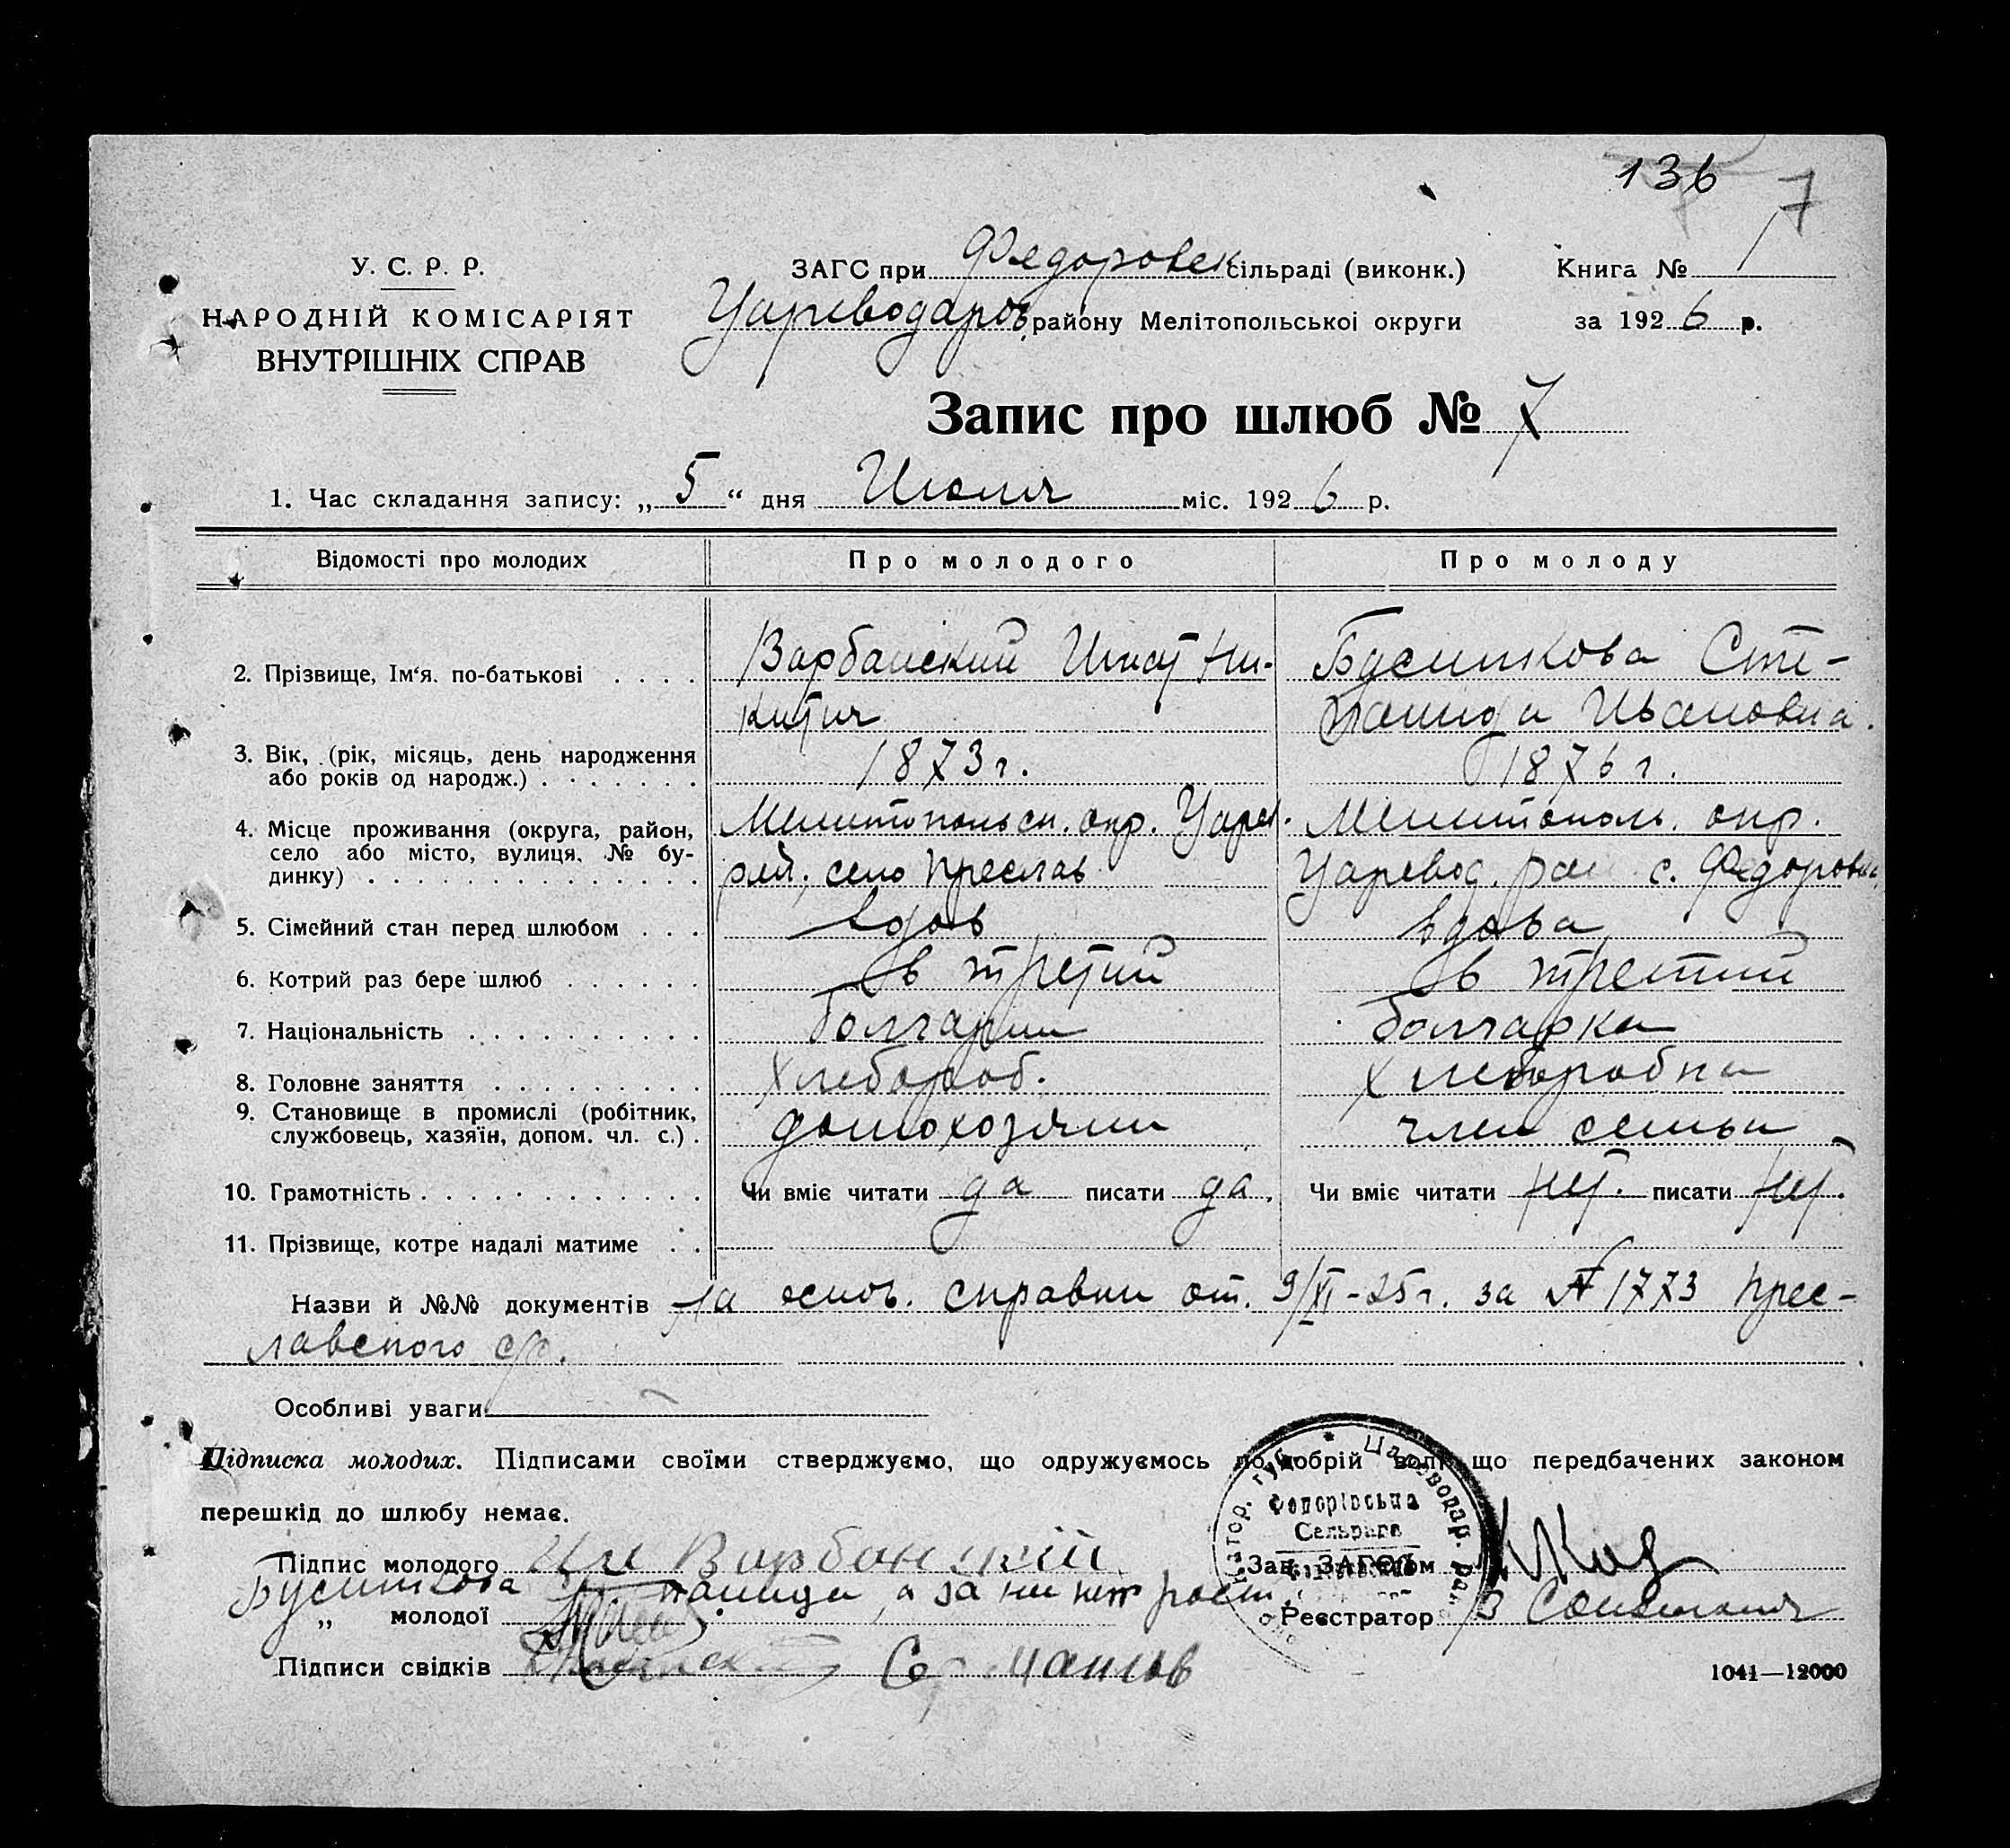 136 7
У. С. Р. Р.
НАРОДНІЙ КОМІСАРІЯТ
ВНУТРІШНІХ СПРАВ
ЗАГС при Федоровск сільраді (виконк.) Книга № 1
Цареводаров. району Мелітопольської округи за 1926 р.
Запис про шлюб № 7
1. Час складання запису: „5“ дня Июля міс. 1926 р.
Відомості про молодих Про молодого Про молоду
2. Прізвище, Ім‘я. по-батькові . . . . Варбанский Игнат Ни- Буситкова Сте-
китич панида Ивановна.
3. Вік, (рік, місяць, день народження 1873 г. 1876 г.
або років од народж.) . . . . . . .
4. Місце проживання (округа, район, Мелитопольск. окр. Царев. Мелитополь. окр.
село або місто, вулиця. № бу- рай., село Преслав Царевод. рай с. Федоровка
динку) . . . . . . . . . . . . . .
5. Сімейний стан перед шлюбом . . . вдов вдова
6. Котрий раз бере шлюб . . . . . . в третий в третий
7. Національність . . . . . . . . . . болгарин болгарка
8. Головне заняття . . . . . . . . . хлебороб. хлеборобка
9. Становище в промислі (робітник,
службовець, хазяїн, допом. чл. с.) . домохозяин член семьи
10. Грамотність . . . . . . . . . . . . Чи вміє читати да писати да. Чи вміє читати нет. писати нет.
11. Прізвище, котре надалі матиме . .
Назви й №№ документів На основ. справки от. 9/XI-25 г. за № 1773 Прес-
лавского с/с.
Особливі уваги
Підписка молодих. Підписами своїми стверджуємо, що одружуємось по добрій волі що передбачених законом
перешкід до шлюбу немає.
Федорівська
Сельрада
Царевводар. рай
Підпис молодого Иг Варбанский Зав. ЗАГСом
Буситкова Степанида, а за ни негр росп.
„ молодої Реєстратор
Підписи свідків
1041—12000